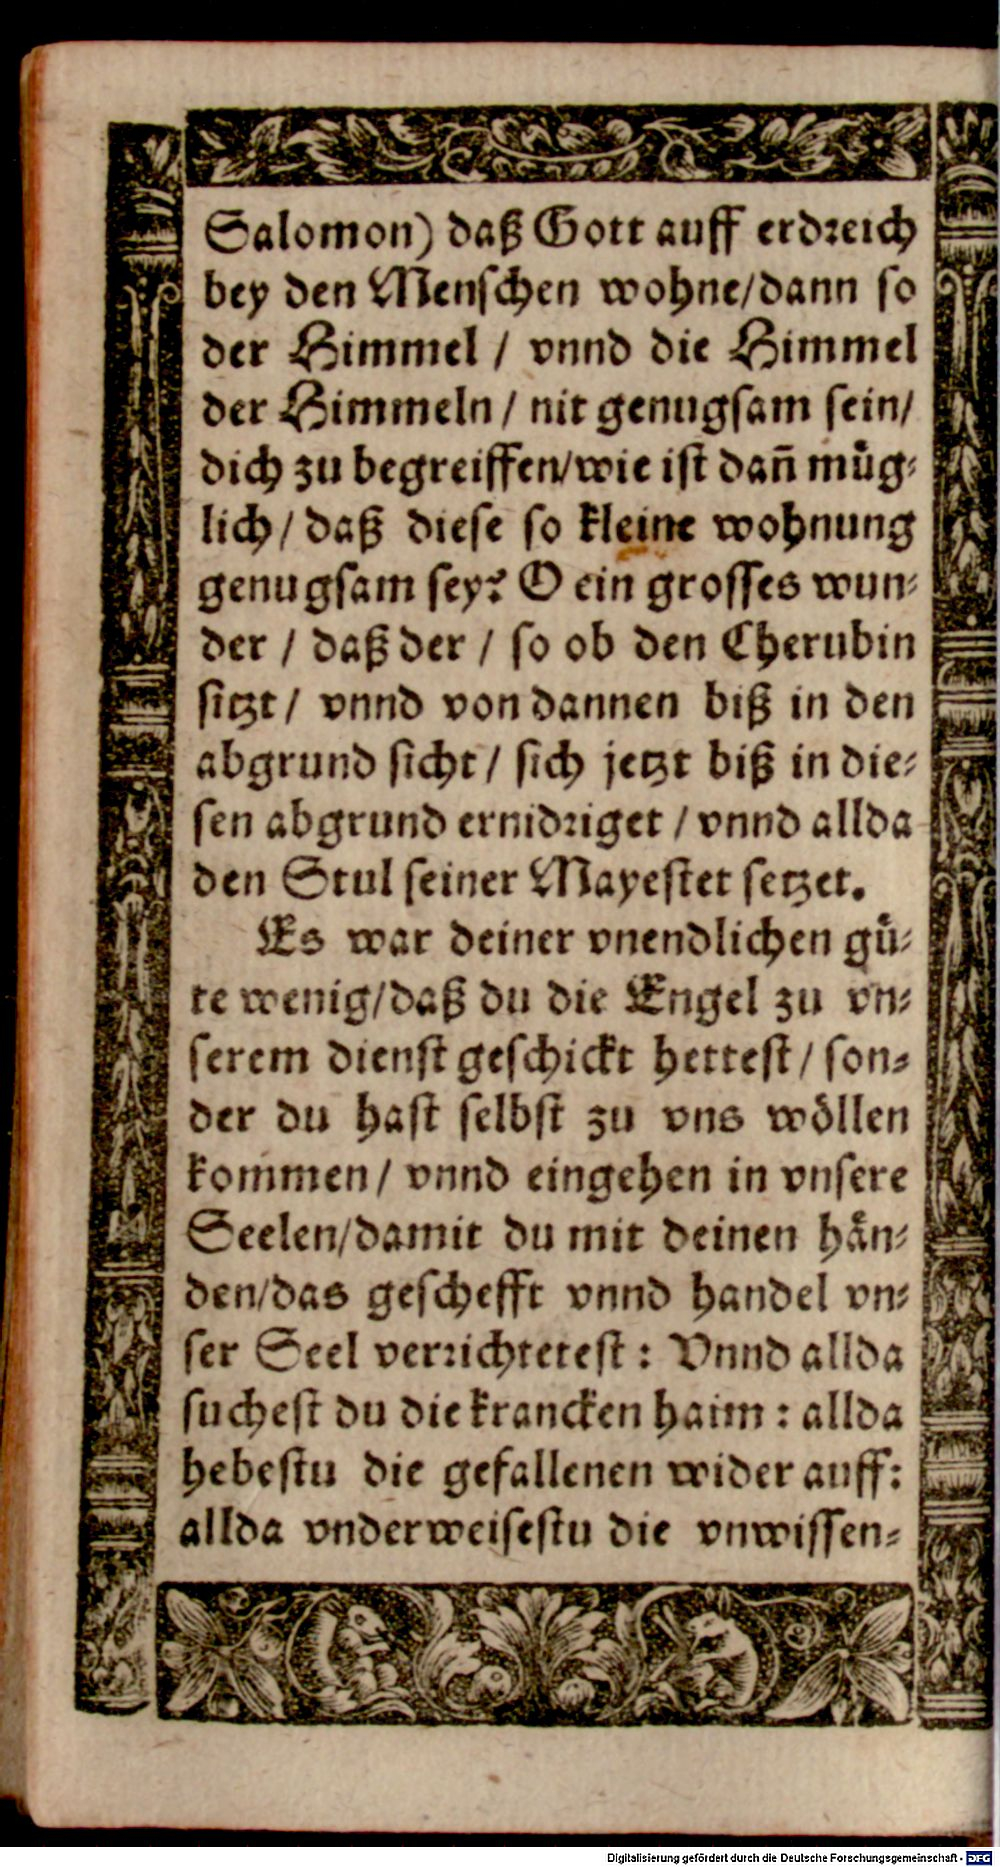 Salomon) daß Gott auff erdreich
bey den Menschen wohne/dann so
der Himmel / vnnd die Himmel
der Himmeln / nit genugsam sein/
dich zu begreiffen/wie ist dañ muͤg⸗
lich / daß diese so kleine wohnung
genugsam sey? O ein grosses wun⸗
der / daß der / so ob den Cherubin
sitzt / vnnd von dannen biß in den
abgrund sicht / sich jetzt biß in die⸗
sen abgrund ernidriget / vnnd allda
den Stul seiner Mayestet setzet.
Es war deiner vnendlichen guͤ⸗
te wenig/daß du die Engel zu vn⸗
serem dienst geschickt hettest / son⸗
der du hast selbst zu vns woͤllen
kommen / vnnd eingehen in vnsere
Seelen/damit du mit deinen haͤn⸗
den/das geschefft vnnd handel vn⸗
ser Seel verrichtetest : Vnnd allda
suchest du die krancken haim : allda
hebestu die gefallenen wider auff:
allda vnderweisestu die vnwissen⸗
Digitalisierung gefördert durch die Deutsche Forschungsgemeinschaft - DFG